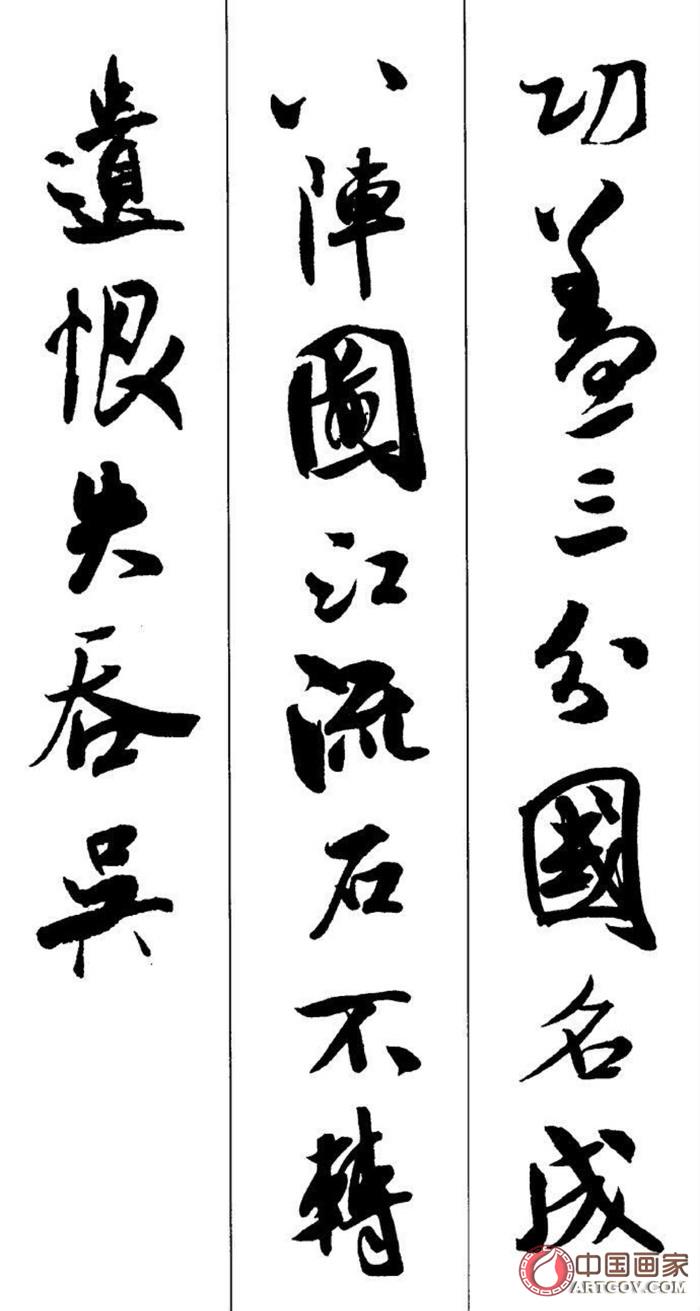 功蓋三分國名成
八陣圖江流石不轉
遺恨失吞吳
中国画家
ARTGOV.COM